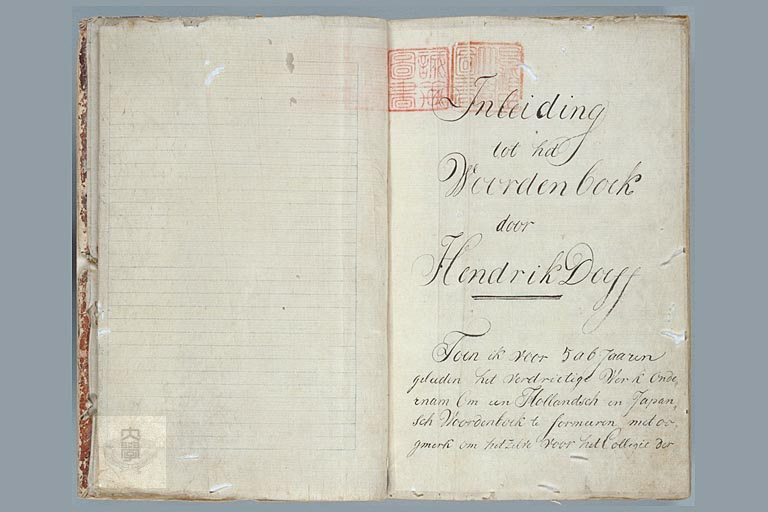 Inleiding
tot het
Woordenboek
door
Hendrik Doeff
Toen ik voor 5 a 6 Jaaren
geleeden het verdrietige Werk onder,
ernam om een Hollandsch en Japan,
sch Woordenboek te formeeren, met oo,
gmerk om hetzelve voor het Collegie der